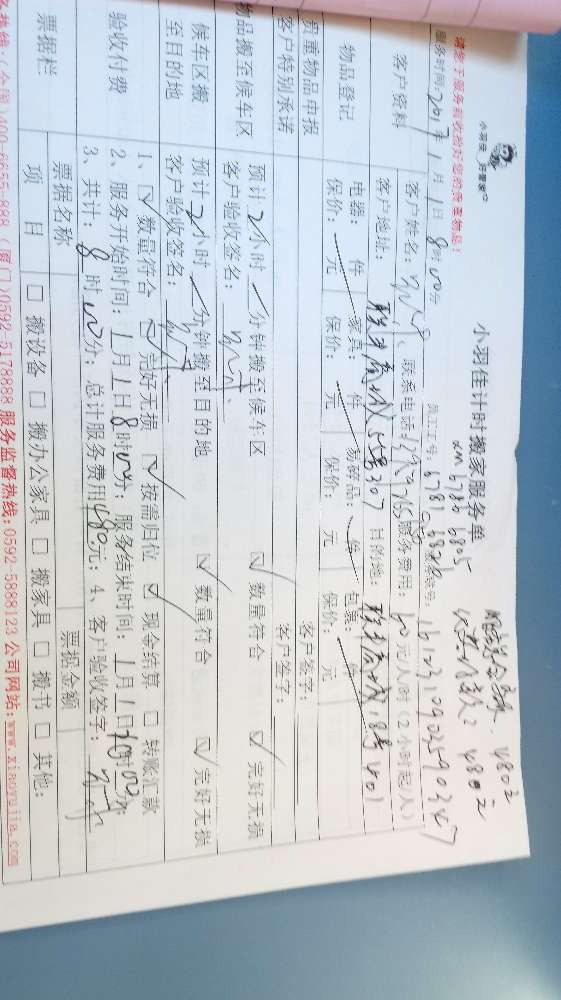 小羽佳计时搬家服务单
小羽佳 好管家
请您于服务前收拾好您的贵重物品!
服务时间:2017年1月1日8时00分
员工工号:
客户资料
客户姓名: 联系电话: 服务费用:60元/人时(2小时起/人)
客户地址: 联丰商城 307 目的地:联丰商城 1801
物品登记
电器: 件 家具: 件 易碎品: 件 包裹: 件
保价: 元 保价: 元 保价: 元 保价: 元
贵重物品申报 客户签字:
客户特别承诺 客户签字:
物品搬至候车区
预计2小时 分钟搬至候车区 ☑ 数量符合 ☑ 完好无损
客户验收签名:
候车区搬至目的地
预计2小时 分钟搬至目的地 ☑ 数量符合 ☑ 完好无损
客户验收签名:
验收付费
1、☑ 数量符合 ☑ 完好无损 ☑ 按需归位 ☑ 现金结算 □ 转账汇款
2、服务开始时间:1月1日8时00分; 服务结束时间:1月1日 时00分;
3、共计:8时00分; 总计服务费用480元; 4、客户验收签字:
票据栏
票据名称 票据金额
项 目 □ 搬设备 □ 搬办公家具 □ 搬家具 □ 搬书 □ 其他:
(全国)400-6655-888 (厦门)0592-5178888 服务监督热线:0592-5888123 公司网站:www.xiaoyujia.com